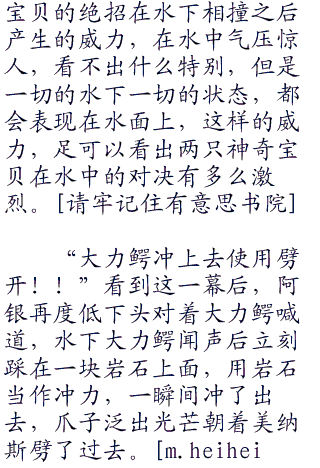 宝贝的绝招在水下相撞之后
产生的威力，在水中气压惊
人，看不出什么特别，但是
一切的水下一切的状态，都
会表现在水面上，这样的威
力，足可以看出两只神奇宝
贝在水中的对决有多么激
烈。[请牢记住有意思书院]
“大力鳄冲上去使用劈
开！！”看到这一幕后，阿
银再度低下头对着大力鳄喊
道，水下大力鳄闻声后立刻
踩在一块岩石上面，用岩石
当作冲力，一瞬间冲了出
去，爪子泛出光芒朝着美纳
斯劈了过去。[m.heihei